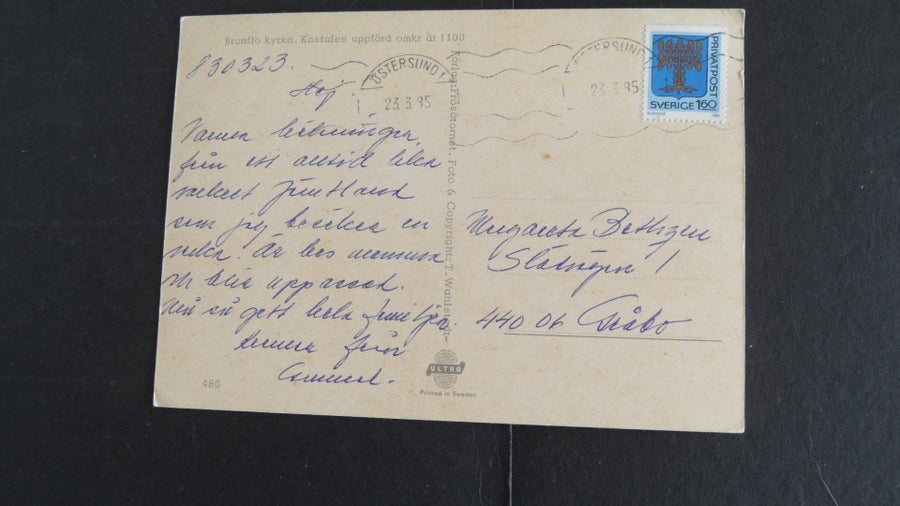 Brunflo kyrka. Kastalen uppförd omkr år 1100
830323.
Hej
Varma hälsningar
från ett alltid lika
vackert Jämtland
som jag besöker en
vecka. Är hos mamma
och blir uppassad.
Må så gott hela familjen.
Kramar från
ÖSTERSUND 1
23.3.85
ÖSTERSUND
23.3.85
PRIVATPOST
SVERIGE 1.60
Förlag: Frösötornet. Foto & Copyright: T. Wahlstedt
Margareta
1
440 06 Gråbo
480
ULTRA
Printed in Sweden